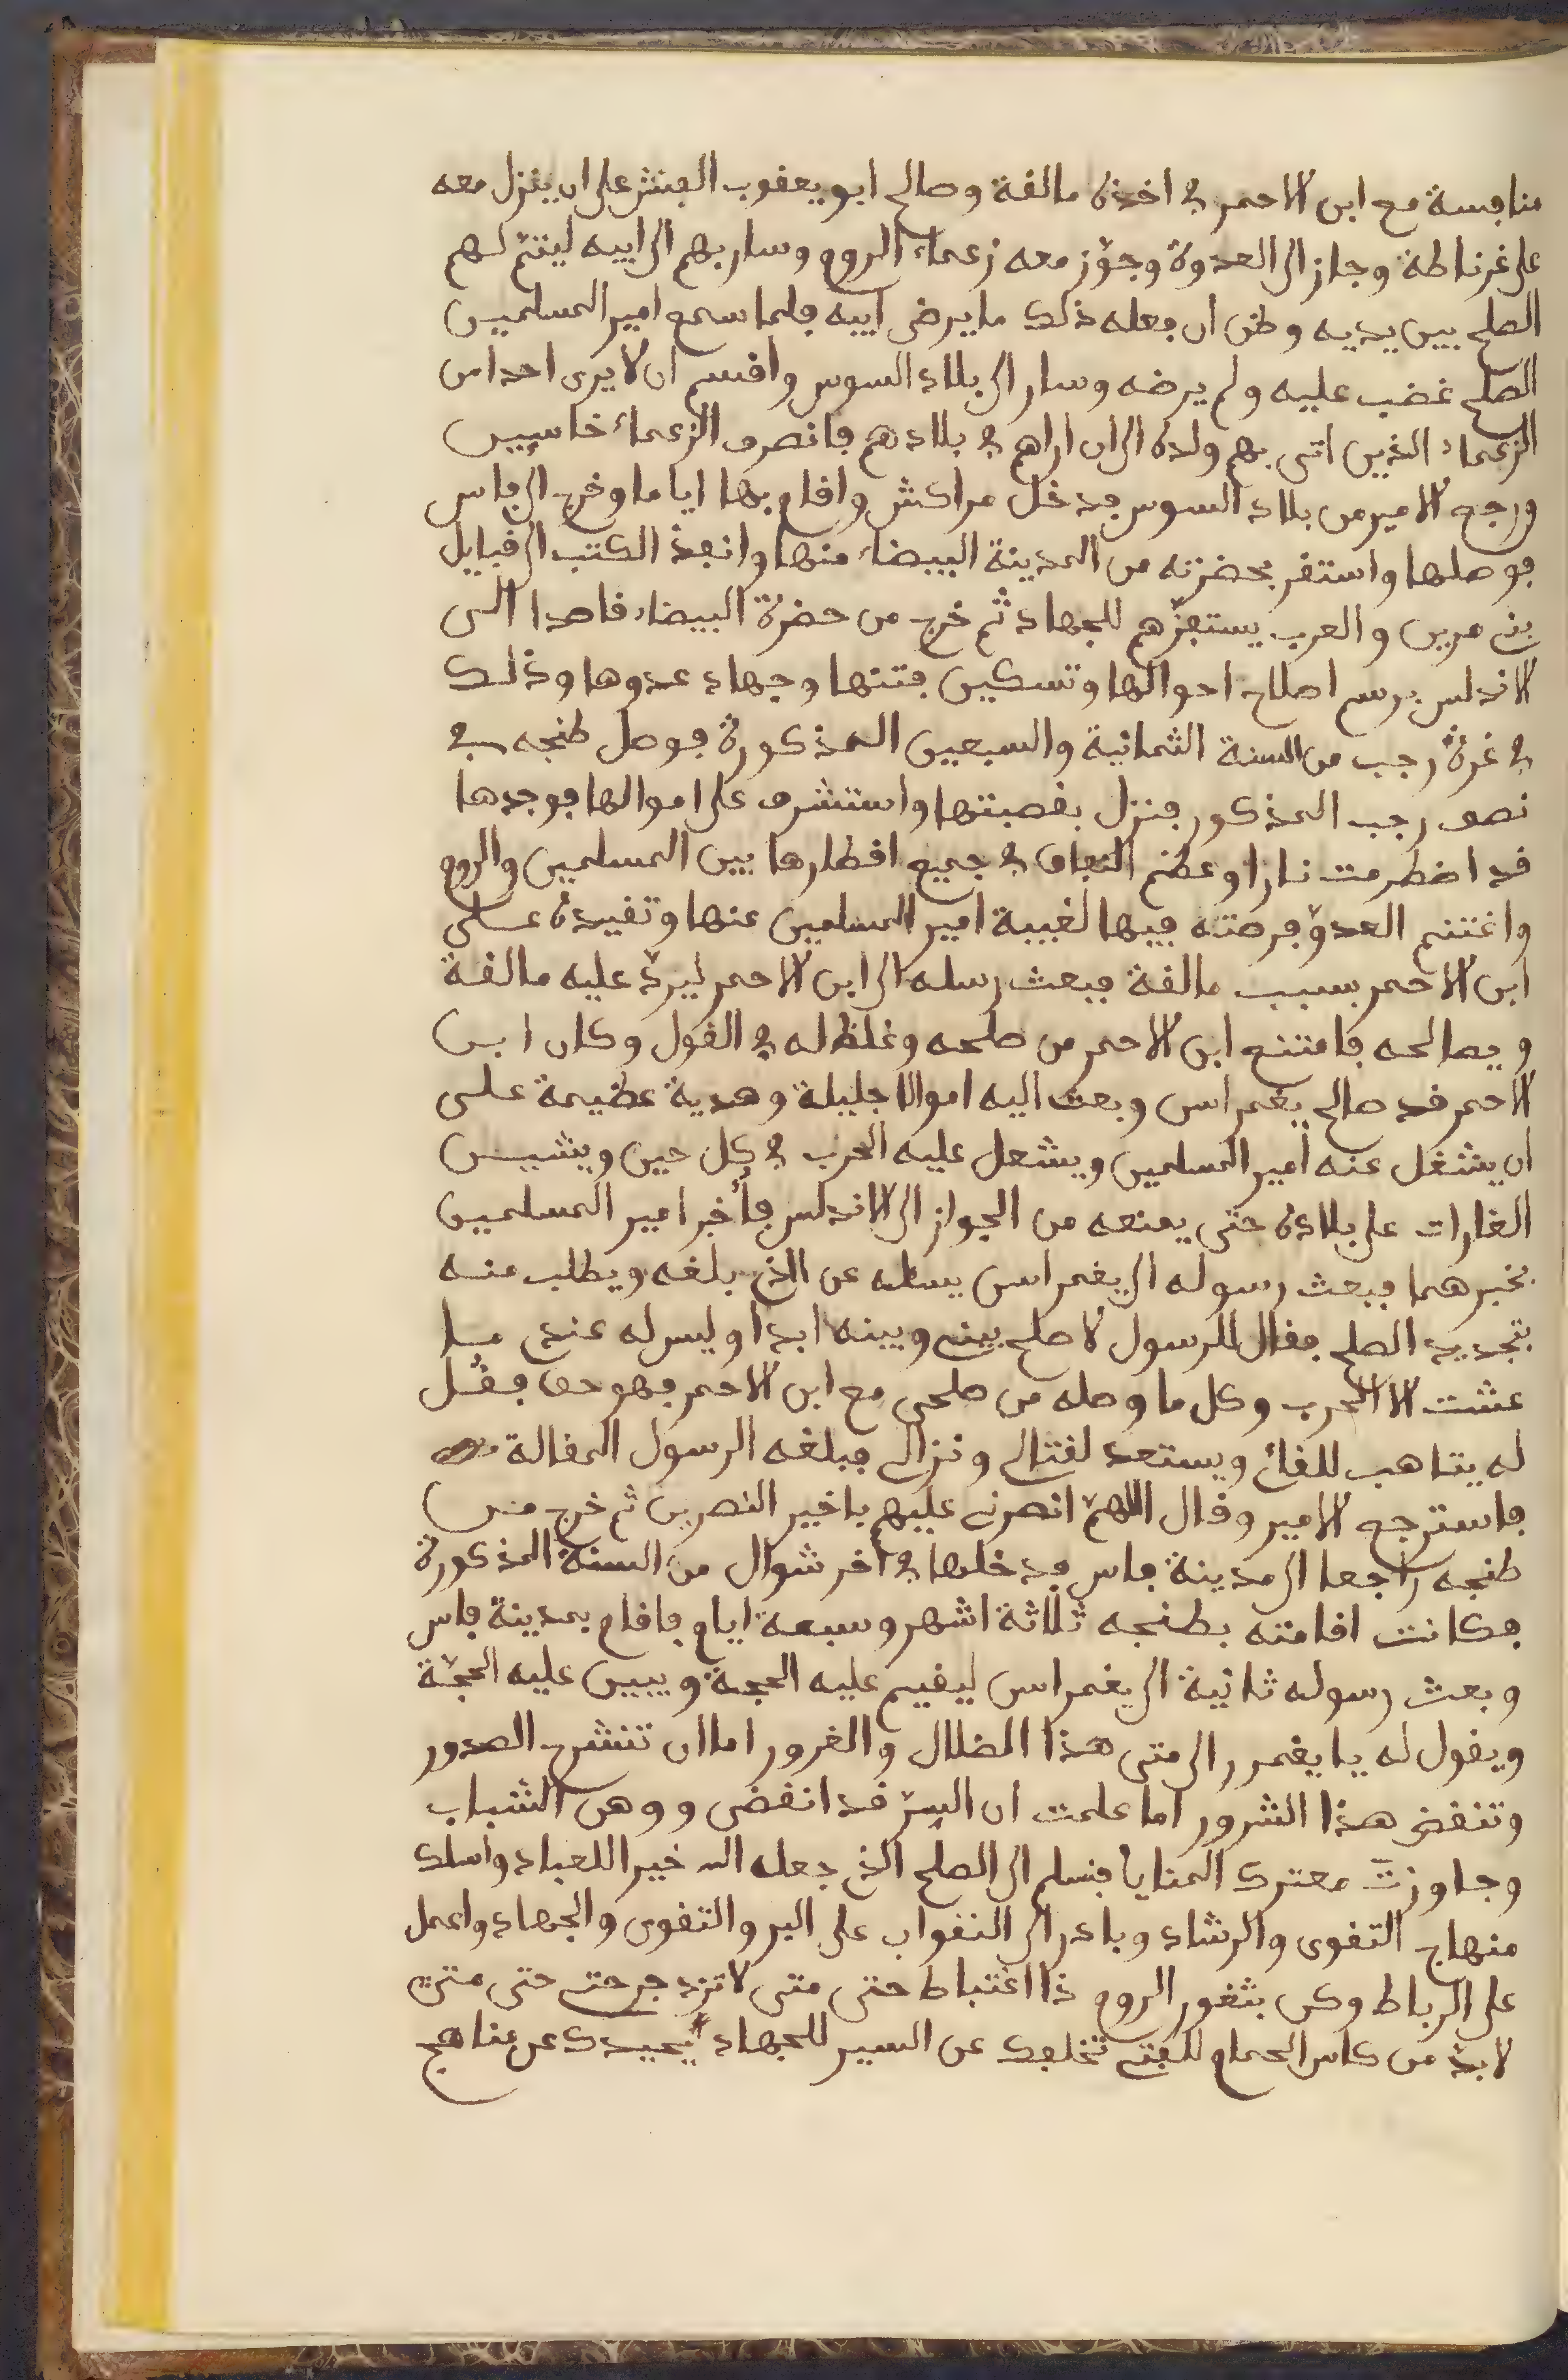 منافسة مع ابن الاحمر في اخذه مالقة وصالح ابو يعقوب الفنش على ان ينزل معه
على غرناطة وجاز الى العدوة وجوّز معه زعماء الروم وسار بهم الى ابيه ليتم لهم
الصلح بين يديه وظن ان فعله ذلك ما يرضى ابيه فلما سمع امير المسلمين
الصلح غضب عليه ولم يرضه وسار الى بلاد السوس واقسم ان لا يرى احدا من
الزعماء الذين اتى بهم ولده الى ان اراهم في بلادهم فانصرف الزعماء خاسيين
ورجع الامير من بلاد السوس فدخل مراكش واقام بها اياما وخرج الى فاس
فوصلها واستقر بحضرته من المدينة البيضاء منها وانفذ الكتب الى قبايل
بني مرين والعرب يستفزّهم للجهاد ثم خرج من حضرة البيضاء قاصدا الى
الاندلس برسم اصلاح احوالها وتسكين فتنها وجهاد عدوها وذلك
في غرة رجب من السنة الثمانية والسبعين المذكورة فوصل طنجه في
نصف رجب المذكور فنزل بقصبتها واستشرف على اموالها فوجدها
قد اضطرمت نارا وعظم النفاق في جميع اقطارها بين المسلمين والروم
واغتنم العدوّ فرصته فيها لغيبة امير المسلمين عنها وتقيده على
ابن الاحمر بسبب مالقة فبعث رسله الى ابن الاحمر ليردّ عليه مالقة
ويصالحه فامتنع ابن الاحمر من صلحه وغلظ له في القول وكان ابن
الاحمر قد صالح يغمراسن وبعث اليه اموالا جليلة وهدية عظيمة على
ان يشغل عنه امير المسلمين ويشعل عليه الحرب في كل حين ويشيــن
الغارات على بلاده حتى يمنعه من الجواز الى الاندلس فأخبر امير المسلمين
بخبرهما فبعث رسوله الى يغمراسن يسئله عن الذي بلغه ويطلب منه
بتجديد الصلح فقال للرسول لا صلح بيني وبينه ابدا وليس له عندي مـا
عشت الا الحرب وكل ما وصله من صلحى مع ابن الاحمر فهو حق فقُل
له يتاهب للقائ ويستعد لقتالي ونزالي فبلغه الرسول المقالة
فاسترجع الامير وقال اللهمّ انصرني عليهم ياخير النصرين ثم خرج من
طنجه راجعا الى مدينة فاس فدخلها في آخر شوال من السنة المذكورة
فكانت اقامته بطنجه ثلاثة اشهر وسبعة ايام فاقام بمدينة فاس
وبعث رسوله ثانية الى يغمراسن ليقيم عليه الحجة ويبين عليه المحجّة
ويقول له يا يغمور الى متى هذا الضلال والغرور اما ان تنشرح الصدور
وتنقضى هذا الشرور اما علمت ان السِرّ قد انقضى ووهى الشباب
وجاوزتَ معترك المنايا فنسلم الى الصلح الذي جعله الله خيرا للعباد واسلك
منهاج التقوى والرشاد وبادر الى النقواب على البر والتقوى والجهاد واعمل
على الرباط وكن بثغور الروم ذا اغتباط حتى متى لا تزد جرحتى حتى متى
لا بدّ من كاس الحمام للفتى تخلفك عن السير للجهاد يحيدك عن مناهج